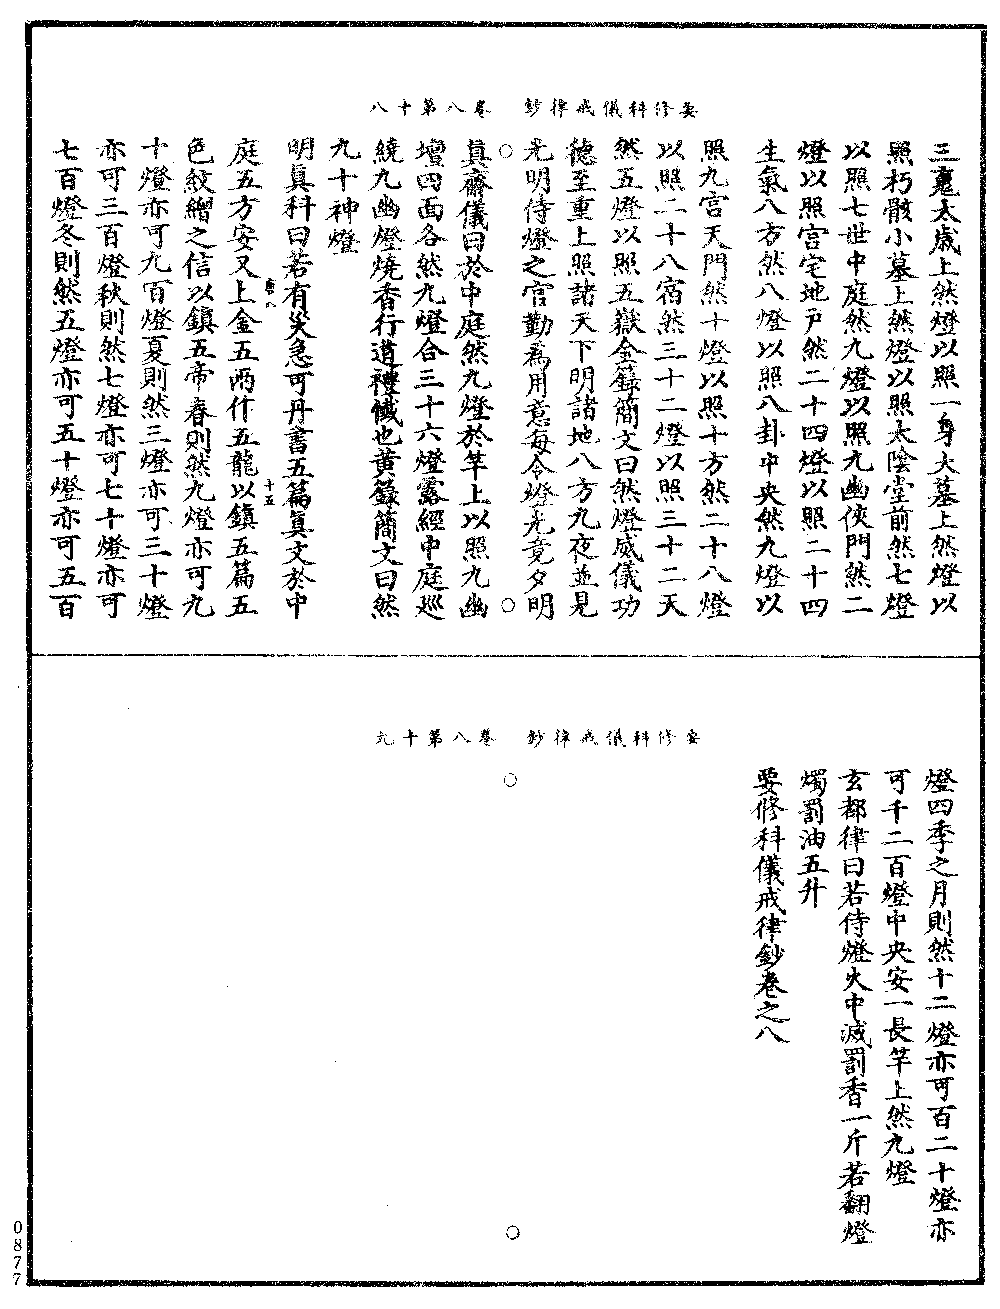 要修科儀戒律鈔　卷八第十八
三魂太歲上然燈以照一身大墓上然燈以
照朽骸小墓上然燈以照太陰堂前然七燈
以照七世中庭然九燈以照九幽俠門然二
燈以照宮宅地戶然二十四燈以照二十四
生氣八方然八燈以照八卦中央然九燈以
照九宮天門然十燈以照十方然二十八燈
以照二十八宿然三十二燈以照三十二天
然五燈以照五嶽金籙簡文曰然燈威儀功
德至重上照諸天下明諸地八方九夜並見
光明侍燈之官勤爲用意每令燈光竟夕明
真齋儀曰於中庭然九燈於竿上以照九幽
壇四面各然九燈合三十六燈露經中庭巡
繞九幽燈燒香行道禮懺也黃籙簡文曰然
九十神燈
唐八
十五
明眞科曰若有災急可丹書五篇眞文於中
庭五方安又上金五兩作五龍以鎮五篇五
色紋繒之信以鎮五帝春則然九燈亦可九
十燈亦可九百燈夏則然三燈亦可三十燈
亦可三百燈秋則然七燈亦可七十燈亦可
七百燈冬則然五燈亦可五十燈亦可五百
要修科儀戒律鈔　卷八第十九
燈四季之月則然十二燈亦可百二十燈亦
可千二百燈中央安一長竿上然九燈
玄都律曰若侍燈火中滅罰香一斤若翻燈
燭罰油五升
要修科儀戒律鈔卷之八
0877